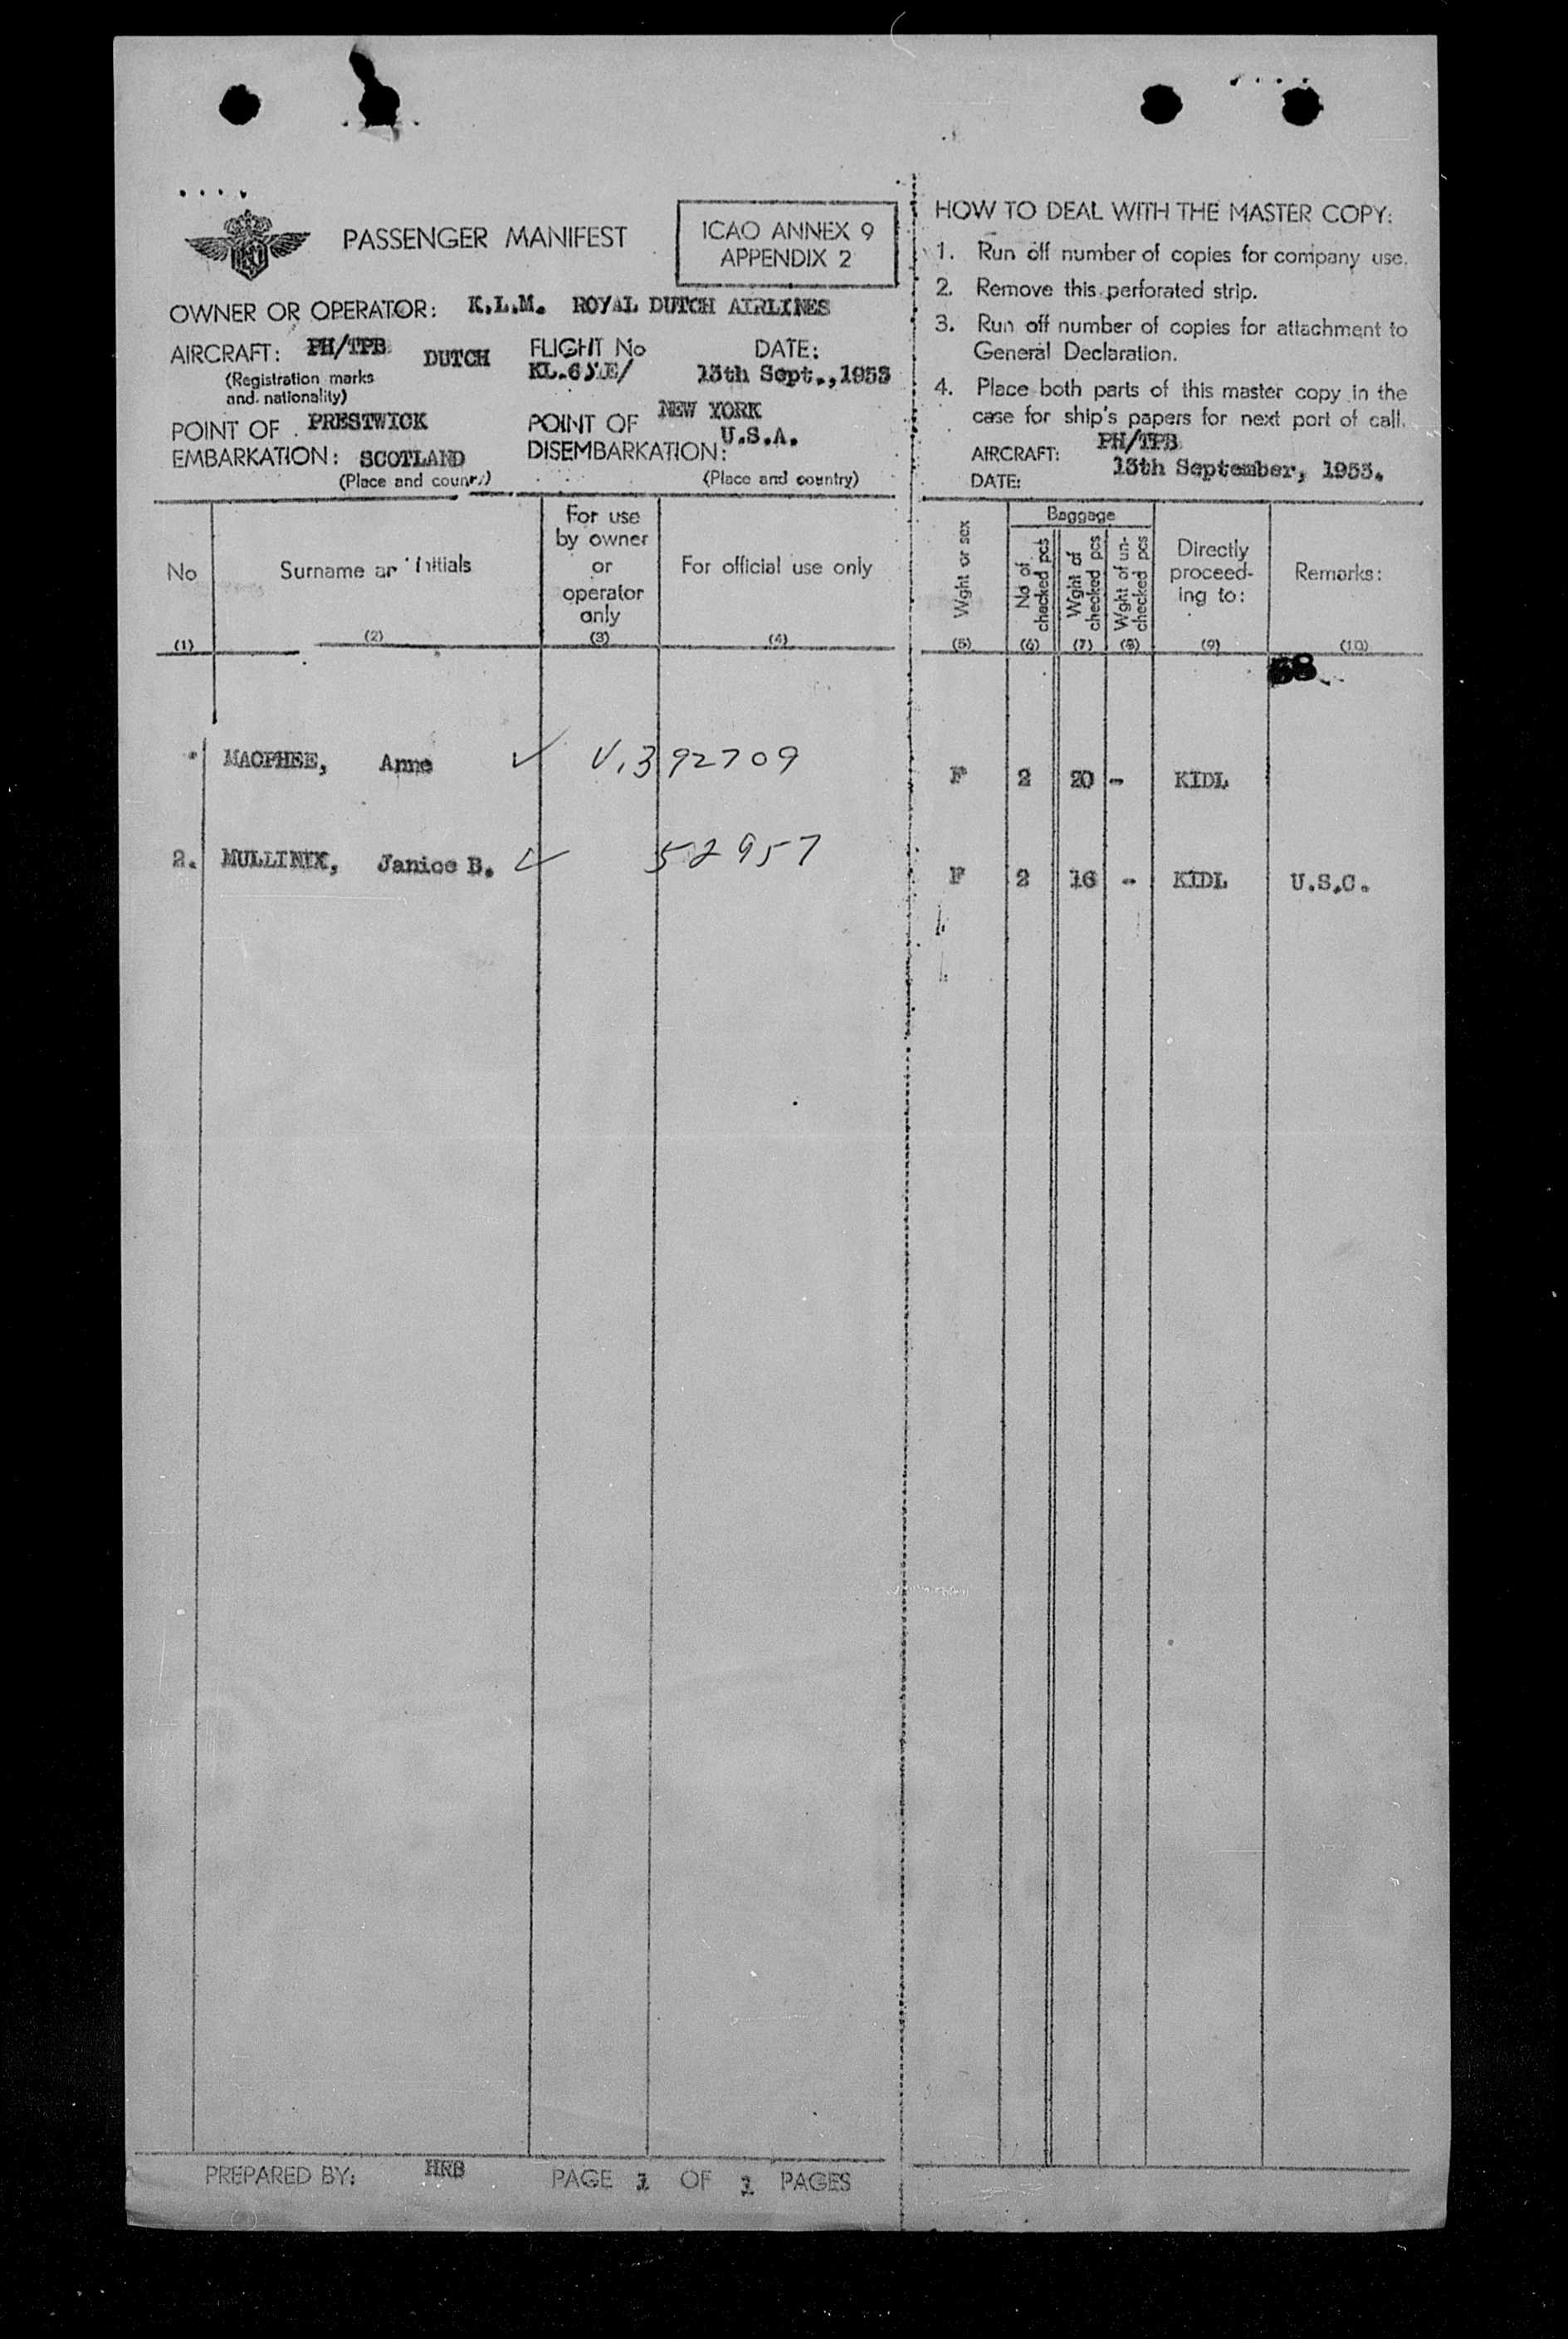 PASSENGER MANIFEST
ICAO ANNEX 9
APPENDIX 2
OWNER OR OPERATOR: K.L.M. ROYAL DUTCH AIRLINES
AIRCRAFT: PH/TPB DUTCH
(Registration marks
and nationality)
FLIGHT No
DATE:
13th Sept., 1953
POINT OF PRESTWICK
EMBARKATION: SCOTLAND
(Place and
POINT OF NEW YORK
DISEMBARKATION: U.S.A.
(Place and country)
HOW TO DEAL WITH THE MASTER COPY:
1. Run off number of copies for company use.
2. Remove this perforated strip.
3. Run off number of copies for attachment to
General Declaration.
4. Place both parts of this master copy in the
case for ship's papers for next port of call.
AIRCRAFT: PH/TPB
DATE: 13th September, 1953.
No
(1)
Surname initials
(2)
For use
by owner
or
operator
only
(3)
For official use only
(4)
Wght or sex
(5)
Baggage
No of
checked pcs
(6)
Wght of
checked pcs
(7)
Wght of un-
checked pcs
(8)
Directly
proceed-
ing to:
(9)
Remarks:
(10)
MACPHEE, Anne ✓ V.392709 F 2 20 - KIDL
2. MULLINIX, Janice B. ✓ 52957 F 2 16 - KIDL U.S.C.
PREPARED BY: HRB PAGE 1 OF 1 PAGES